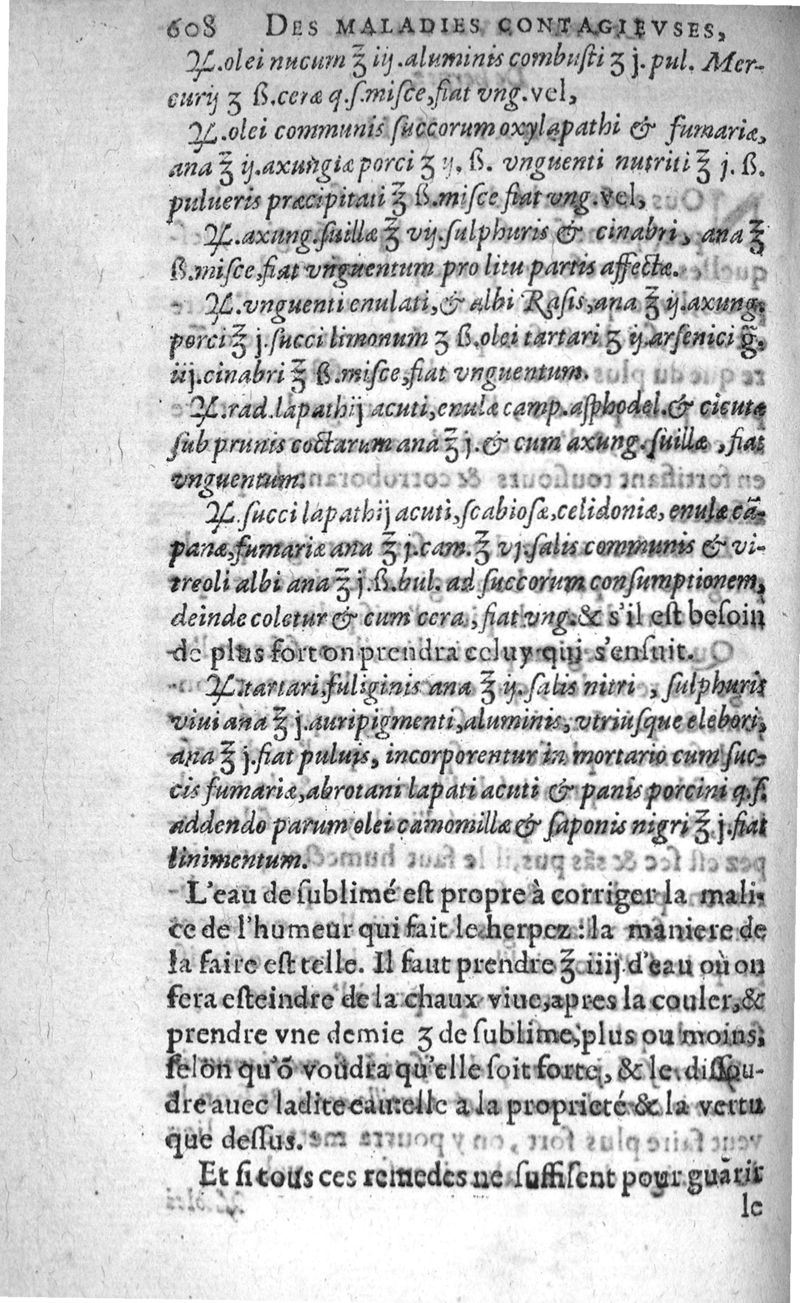 608 DES MALADIES CONTAGIEVSES,
℞.olei nucum ℥ iij.aluminis combuſti ʒ j. pul. Mer-
curij ʒ ß.ceræ q.ſ.miſce,fiat vng.vel,
℞.olei communis ſuccorum oxylapathi & fumariæ,
ana ℥ ij.axungiæ porci ʒ ij. ß. vnguenti nutriti ℥ j. ß.
pulueris præcipitati ℥ ß.miſce fiat vng.vel,
℞.axung.ſuillæ ℥ vij.ſulphuris & cinabri, ana ℥
ß.miſce,fiat vnguentum pro litu partis affectæ.
℞.vnguenti enulati,& albi Raſis,ana ℥ ij.axung.
porci ℥ j.ſucci limonum ʒ ß.olei tartari ʒ ij.arſenici g̃.
iij.cinabri ℥ ß.miſce,fiat vnguentum.
℞.rad.lapathij acuti,enulæ camp.aſphodel.& cicutæ
ſub prunis coctarum ana ℥ j.& cum axung.ſuillæ ,fiat
vnguentum.
℞.ſucci lapathij acuti,ſcabioſæ,celidoniæ, enulæ cã-
panæ,fumariæ ana ℥ j.cam.℥ vj.ſalis communis & vi-
treoli albi ana ℥ j.ß.bul. ad ſuccorum conſumptionem,
deinde coletur & cum cera, fiat vng.& s'il eſt beſoin
de plus fort on prendra celuy qui s'enſuit.
℞.tartari,fuliginis ana ℥ ij. ſalis nitri , ſulphuris
viui ana ℥ j.auripigmenti,aluminis, vtriuſque elebori,
ana ℥ j.fiat puluis, incorporentur in mortario cum ſuc-
cis fumariæ,abrotani lapati acuti & panis porcini q.ſ.
addendo parum olei camomillæ & ſaponis nigri ℥ j.fiat
linimentum.
L'eau de ſublimé eſt propre à corriger la mali-
ce de l'humeur qui fait le herpez : la maniere de
la faire eſt telle. Il faut prendre ℥ iiij d'eau où on
fera eſteindre de la chaux viue,apres la couler,&
prendre vne demie ʒ de ſublime,plus ou moins,
ſelon qu'õ voudra qu'elle ſoit forte, & le diſſou-
dre auec ladite eau:elle a la proprieté & la vertu
que deſſus.
Et ſi tous ces remedes ne ſuffiſent pour guarir
le